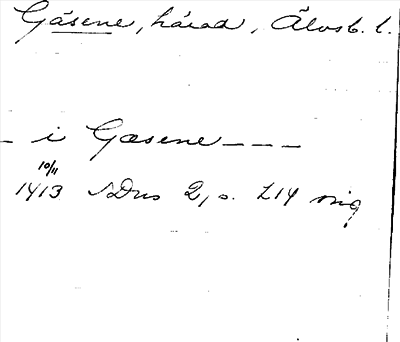 Gäsene, härad, Älvsb. l.
– i Gæsene – – –
10/11
1413 SDns 2, s. 214 orig